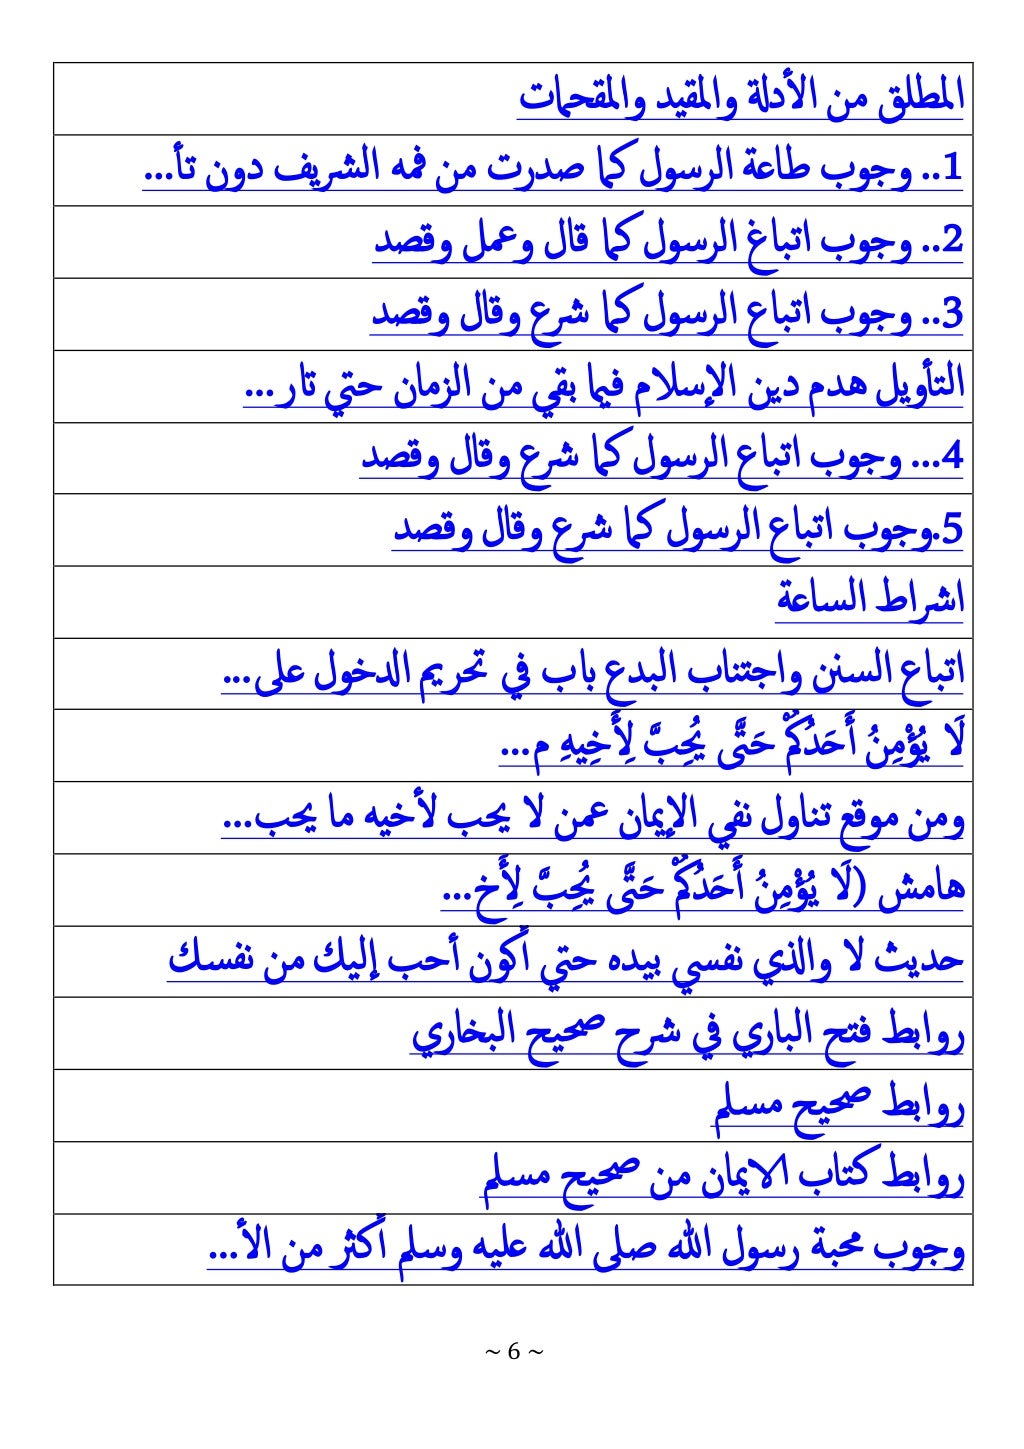 المطلق من الأدلة والمقيد والمقحمات
1.. وجوب طاعة الرسول كما صدرت من فمه الشريف دون تأ...
2.. وجوب اتباغ الرسول كما قال وعمل وقصد
3.. وجوب اتباع الرسول كما شرع وقال وقصد
التأويل هدم دين الإسلام فيما بقي من الزمان حتي تار...
4... وجوب اتباع الرسول كما شرع وقال وقصد
5.وجوب اتباع الرسول كما شرع وقال وقصد
اشراط الساعة
اتباع السنن واجتناب البدع باب في تحريم الدخول على...
لَا يُؤْمِنُ أَحَدُكُمْ حَتَّى يُحِبَّ لِأَخِيهِ م...
ومن موقع تناول نفي الإيمان عمن لا يحب لأخيه ما يحب...
هامش (لَا يُؤْمِنُ أَحَدُكُمْ حَتَّى يُحِبَّ لِأَخ...
حديث لا والذي نفسي بيده حتي أكون أحب إليك من نفسك
روابط فتح الباري في شرح صحيح البخاري
روابط صحيح مسلم
روابط كتاب الايمان من صحيح مسلم
وجوب محبة رسول الله صلى الله عليه وسلم أكثر من الأ...
~ 6 ~